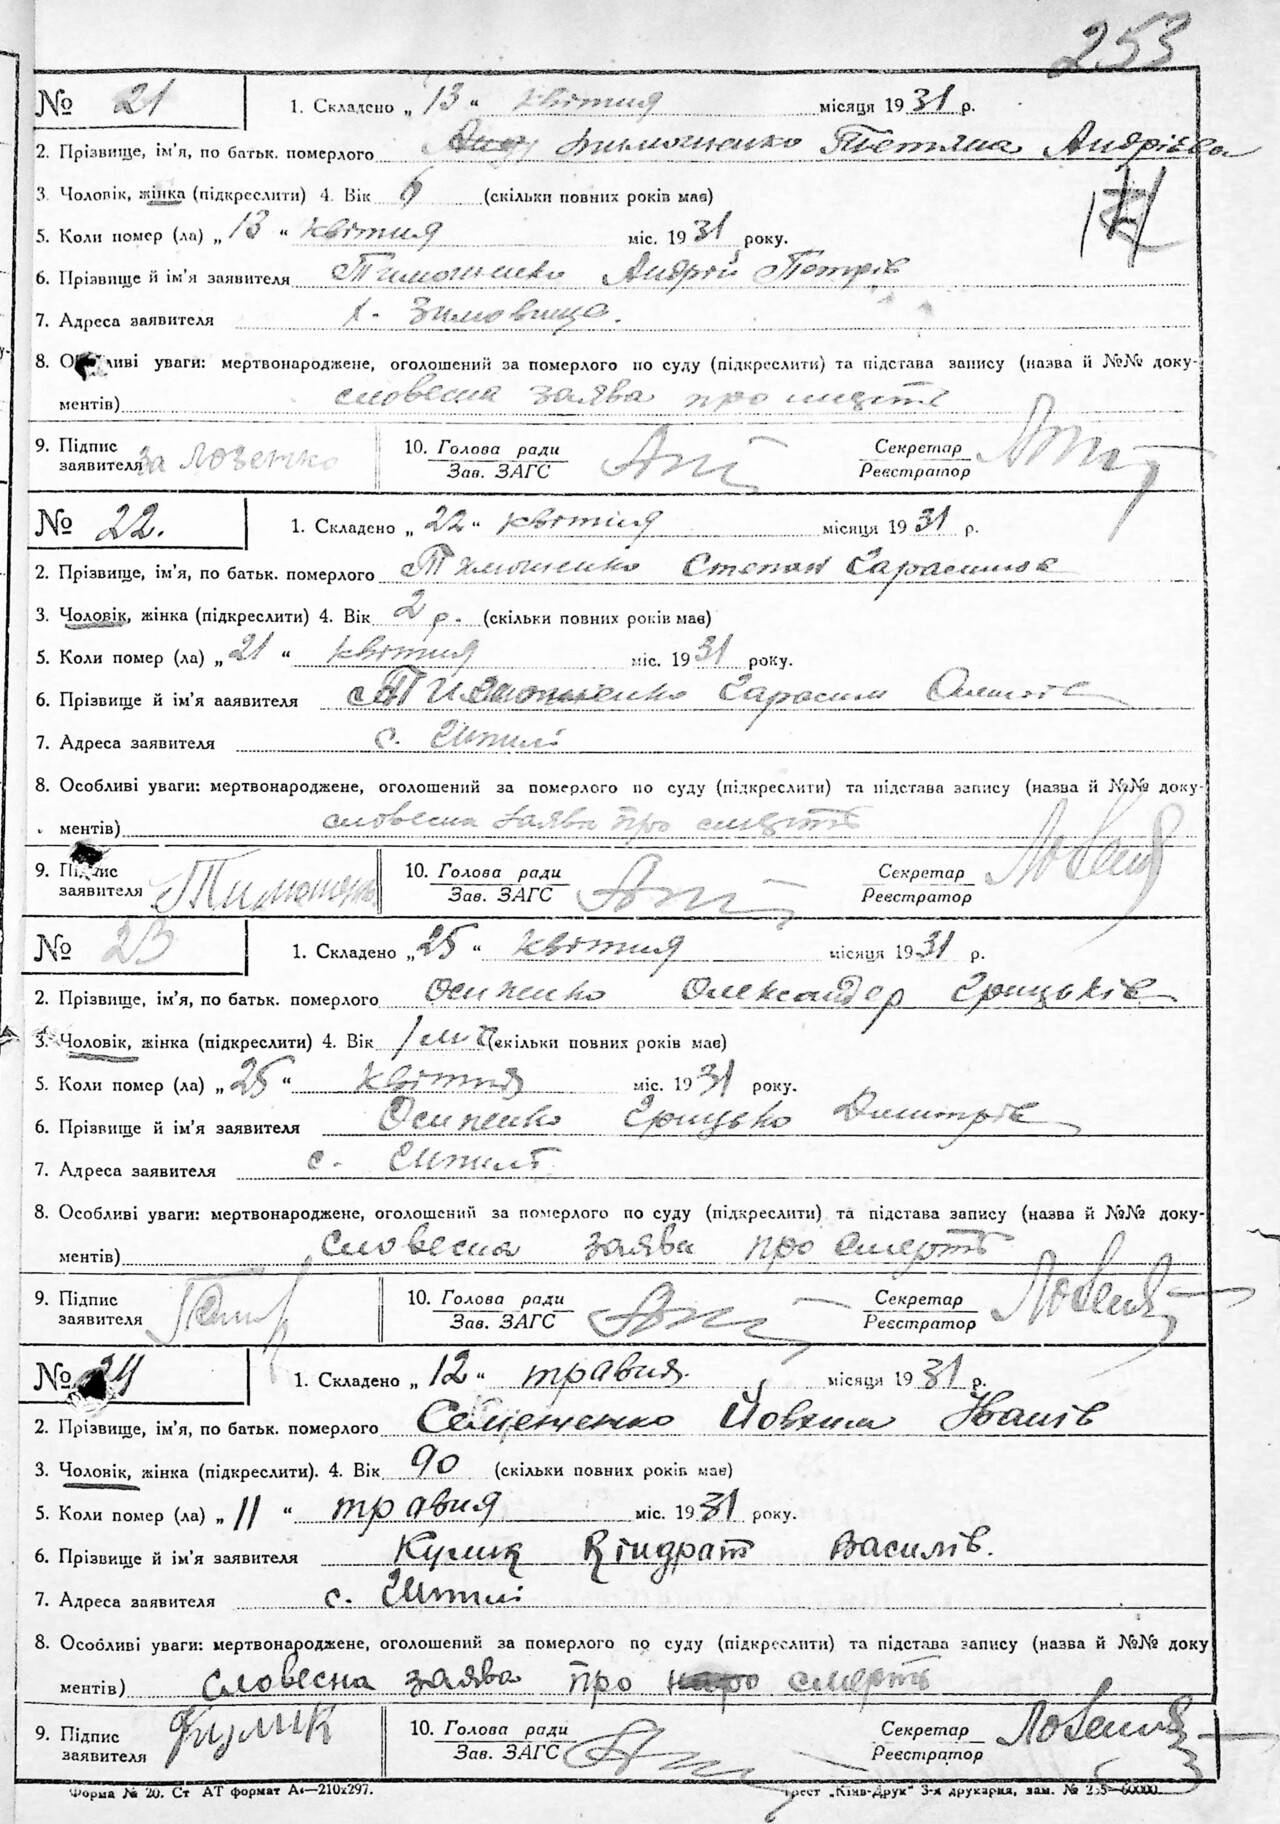 253
№ 21 1. Складено „ 13 “ квітня місяця 1931 р.
2. Прізвище, ім'я, по батьк. померлого Тимошенко Тетяна Андрієва
3. Чоловік, жінка (підкреслити) 4. Вік 6 (скільки повних років має)
5. Коли помер (ла) „ 13 “ квітня міс. 1931 року.
6. Прізвище й ім'я заявителя Тимошенко Андрій Петрів
7. Адреса заявителя х. Зимовище.
8. Особливі уваги: мертвонароджене, оголошений за померлого по суду (підкреслити) та підстава запису (назва й №№ доку-
ментів) словесна заява про смерть
9. Підпис заявителя за 10. Голова ради Зав. ЗАГС Секретар Реєстратор
№ 22. 1. Складено „ 22 “ квітня місяця 1931 р.
2. Прізвище, ім'я, по батьк. померлого Тимошенко Степан Гарасимов
3. Чоловік, жінка (підкреслити) 4. Вік 2 р. (скільки повних років має)
5. Коли помер (ла) „ 21 “ квітня міс. 1931 року.
6. Прізвище й ім'я заявителя Тимошенко Гарасим
7. Адреса заявителя с.
8. Особливі уваги: мертвонароджене, оголошений за померлого по суду (підкреслити) та підстава запису (назва й №№ доку-
ментів) словесна заява про смерть
9. Підпис заявителя Тимошенко 10. Голова ради Зав. ЗАГС Секретар Реєстратор
№ 23 1. Складено „ 25 “ квітня місяця 1931 р.
2. Прізвище, ім'я, по батьк. померлого Осипенко Олександер Грицьків
3. Чоловік, жінка (підкреслити) 4. Вік 1 (скільки повних років має)
5. Коли помер (ла) „ 25 “ квітня міс. 1931 року.
6. Прізвище й ім'я заявителя Осипенко Грицько Дмитрів
7. Адреса заявителя с.
8. Особливі уваги: мертвонароджене, оголошений за померлого по суду (підкреслити) та підстава запису (назва й №№ доку-
ментів) словесна заява про смерть
9. Підпис заявителя 10. Голова ради Зав. ЗАГС Секретар Реєстратор
№ 24 1. Складено „ 12 “ травня місяця 1931 р.
2. Прізвище, ім'я, по батьк. померлого Семененко Йовхим Іванів
3. Чоловік, жінка (підкреслити). 4. Вік 90 (скільки повних років має)
5. Коли помер (ла) „ 11 “ травня міс. 1931 року.
6. Прізвище й ім'я заявителя Кулик Кіндрат Василів.
7. Адреса заявителя с.
8. Особливі уваги: мертвонароджене, оголошений за померлого по суду (підкреслити) та підстава запису (назва й №№ доку
ментів) словесна заява про смерть
9. Підпис заявителя Кулик 10. Голова ради Зав. ЗАГС Секретар Реєстратор
Форма № 20. Ст АТ формат А4—210х297. трест „Київ-Друк“ 3-я друкарня, зам. № 255—60000.